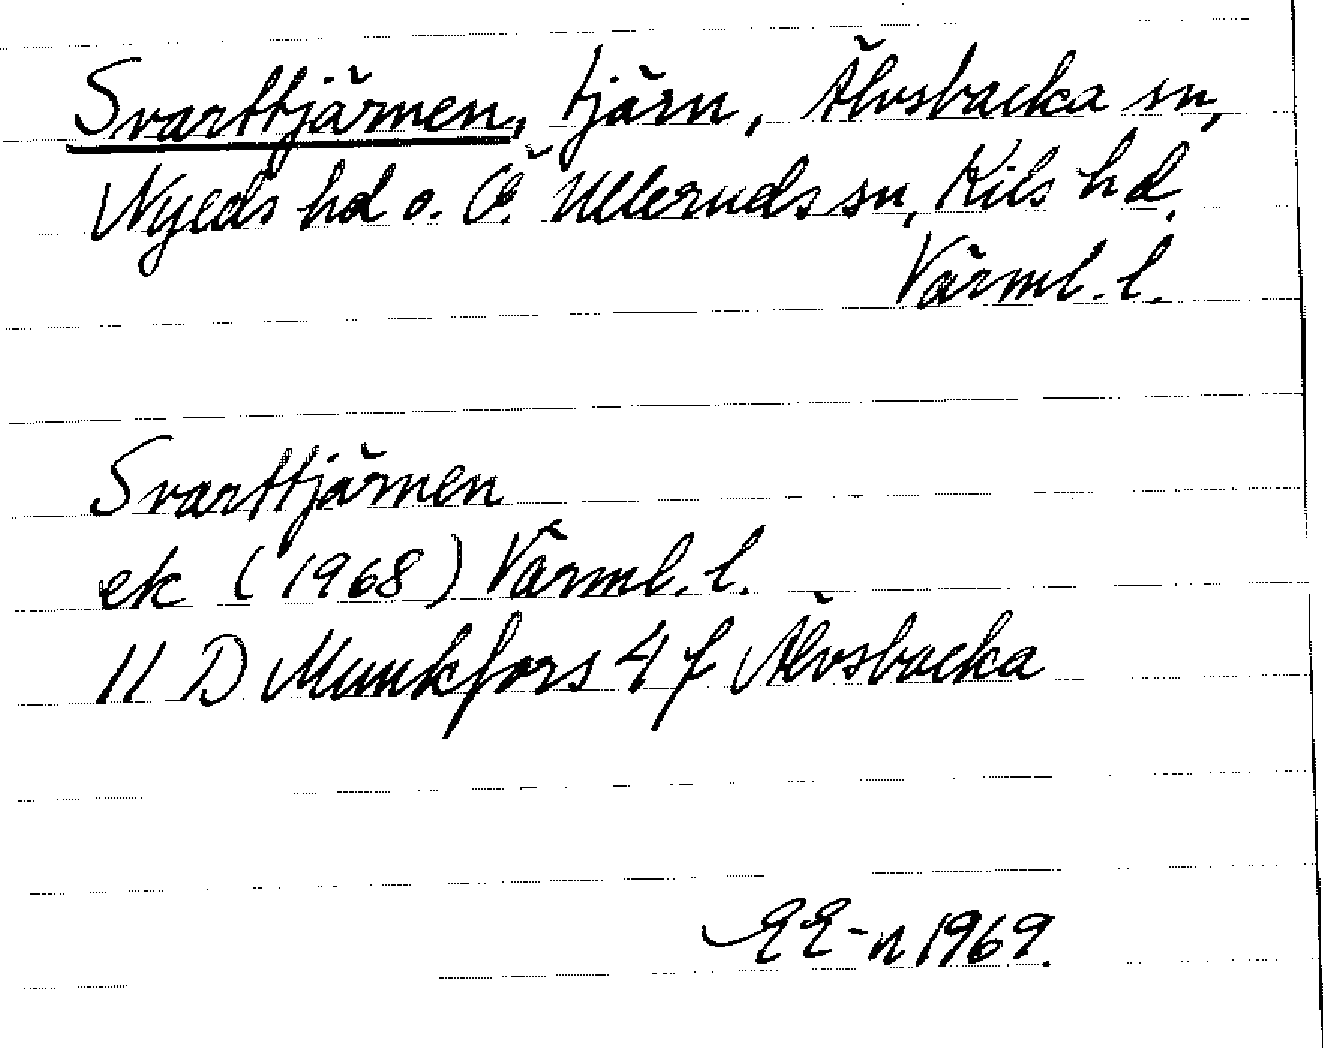 Svarttjärnen, tjärn, Älvsbacka sn,
Nyeds hd o. Ö. Ulleruds sn, Kils hd,
Värml. l.
Svarttjärnen
ek (1968) Värml. l.
11 D Munkfors 4 f Älvsbacka
EE-n 1969.